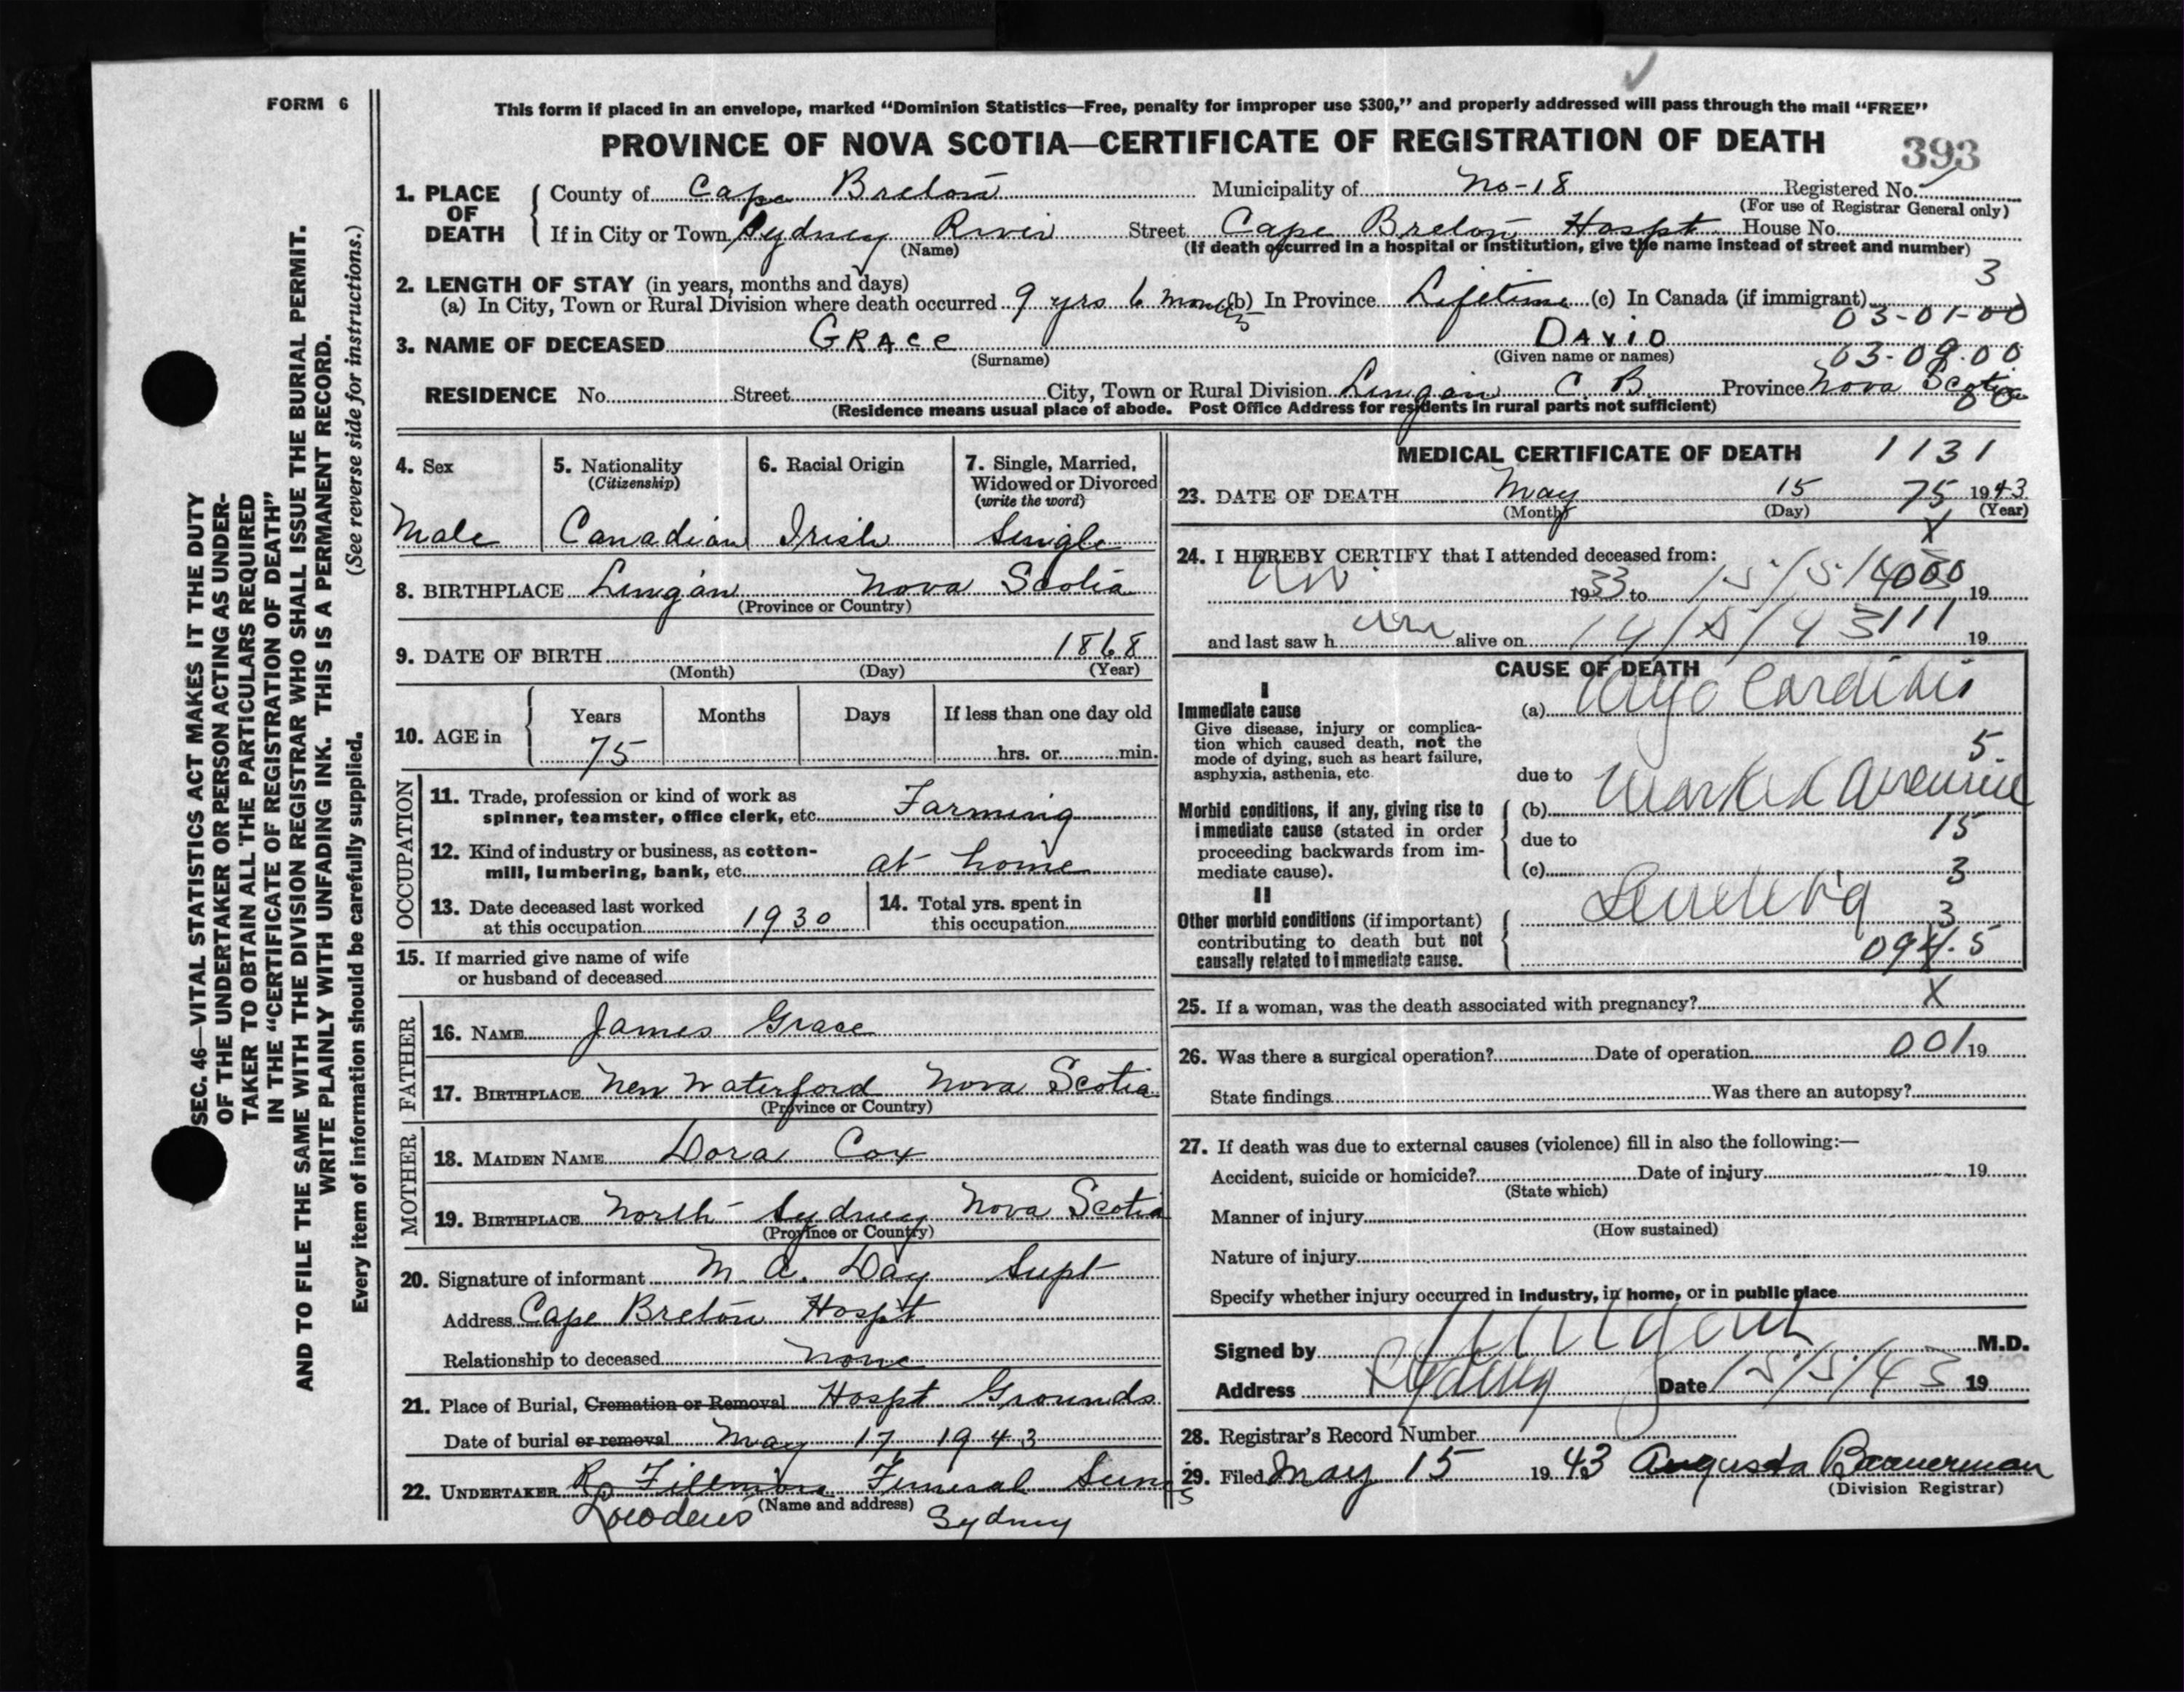 FORM 6
This form if placed in an envelope, marked "Dominion Statistics—Free, penalty for improper use $300," and properly addressed will pass through the mail "FREE"
PROVINCE OF NOVA SCOTIA—CERTIFICATE OF REGISTRATION OF DEATH
393
SEC. 46—VITAL STATISTICS ACT MAKES IT THE DUTY
OF THE UNDERTAKER OR PERSON ACTING AS UNDER-
TAKER TO OBTAIN ALL THE PARTICULARS REQUIRED
IN THE "CERTIFICATE OF REGISTRATION OF DEATH"
AND TO FILE THE SAME WITH THE DIVISION REGISTRAR WHO SHALL ISSUE THE BURIAL PERMIT.
WRITE PLAINLY WITH UNFADING INK. THIS IS A PERMANENT RECORD.
Every item of information should be carefully supplied. (See reverse side for instructions.)
1. PLACE OF DEATH
County of Cape Breton Municipality of No-18 Registered No.
(For use of Registrar General only)
If in City or Town Sydney River Street Cape Breton Hospt House No.
(Name) (If death occurred in a hospital or institution, give the name instead of street and number)
2. LENGTH OF STAY (in years, months and days) 3
(a) In City, Town or Rural Division where death occurred 9 yrs 6 months (b) In Province Lifetime (c) In Canada (if immigrant)
03-01-00
3. NAME OF DECEASED GRACE DAVID
(Surname) (Given name or names) 03-09-00
RESIDENCE No. Street City, Town or Rural Division Lingan C. B. Province Nova Scotia
(Residence means usual place of abode. Post Office Address for residents in rural parts not sufficient)
4. Sex
Male
5. Nationality
(Citizenship)
Canadian
6. Racial Origin
Irish
7. Single, Married,
Widowed or Divorced
(write the word)
Single
8. BIRTHPLACE Lingan Nova Scotia
(Province or Country)
9. DATE OF BIRTH 1868
(Month) (Day) (Year)
10. AGE in
Years Months Days If less than one day old
75 hrs. or min.
OCCUPATION
11. Trade, profession or kind of work as
spinner, teamster, office clerk, etc. Farming
12. Kind of industry or business, as cotton-
mill, lumbering, bank, etc. at home
13. Date deceased last worked
at this occupation 1930
14. Total yrs. spent in
this occupation
15. If married give name of wife
or husband of deceased
FATHER
16. NAME James Grace
17. BIRTHPLACE New Waterford Nova Scotia
(Province or Country)
MOTHER
18. MAIDEN NAME Dora Cox
19. BIRTHPLACE North Sydney Nova Scotia
(Province or Country)
20. Signature of informant M. A. Day Supt
Address Cape Breton Hospt
Relationship to deceased none
21. Place of Burial, Cremation or Removal Hospt Grounds
Date of burial or removal May 17 1943
22. UNDERTAKER R. Fillmore Funeral
(Name and address)
Sydney
MEDICAL CERTIFICATE OF DEATH 1131
23. DATE OF DEATH May 15 75 1943
(Month) (Day) (Year)
X
24. I HEREBY CERTIFY that I attended deceased from:
1933 to 15/5/4 000 19
and last saw h im alive on 14/5/43 111 19
CAUSE OF DEATH
I
Immediate cause
Give disease, injury or complica-
tion which caused death, not the
mode of dying, such as heart failure,
asphyxia, asthenia, etc.
(a) Myo Carditis
5
due to
Morbid conditions, if any, giving rise to
immediate cause (stated in order
proceeding backwards from im-
mediate cause).
(b) Marked
15
due to
(c) 3
II
Other morbid conditions (if important)
contributing to death but not
causally related to immediate cause.
3
094.5
25. If a woman, was the death associated with pregnancy? X
26. Was there a surgical operation? Date of operation 001 19
State findings Was there an autopsy?
27. If death was due to external causes (violence) fill in also the following:—
Accident, suicide or homicide? Date of injury 19
(State which)
Manner of injury
(How sustained)
Nature of injury
Specify whether injury occurred in industry, in home, or in public place
Signed by M.D.
Address Sydney Date 15/5/43 19
28. Registrar's Record Number
29. Filed May 15 1943 Augusta Bannerman
(Division Registrar)